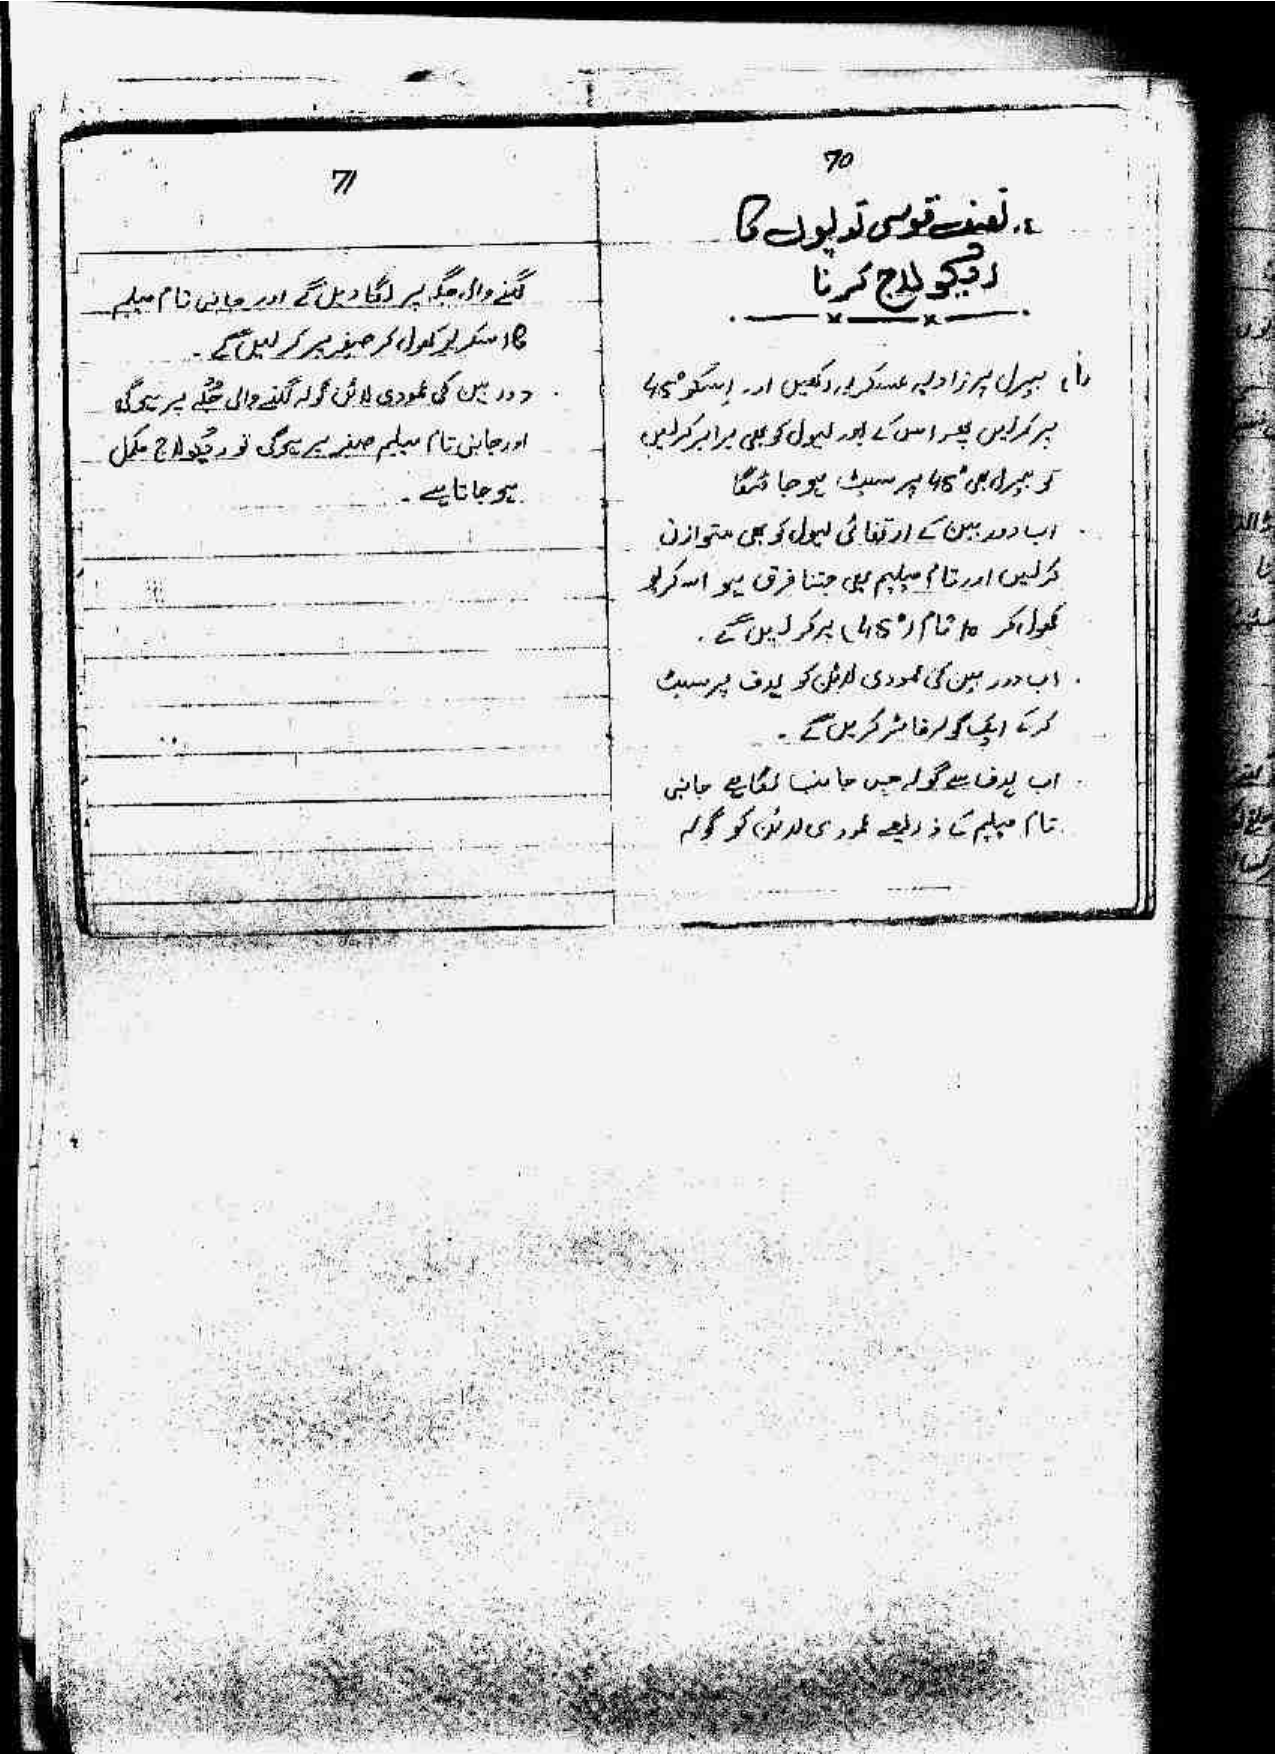 70
نصف قوسی توپوں کا
ریگولاج کرنا
(i) بیرل پر زاویہ عسکریہ رکھیں اور اسکو 45°
پر کرلیں پھر اس کے بعد لیول کو بھی برابر کرلیں
تو بیرل بھی 45° پر سیٹ ہو جائیگا
. اب دوربین کے ارتفاعی لیول کو بھی متوازن
کرلیں اور تام میلیم میں جتنا فرق ہو اسکریو
کھول کر تام (45°) پر کرلیں گے .
. اب دوربین کی عمودی لائن کو ہدف پر سیٹ
کرکے ایک گولہ فائر کریں گے .
. اب ہدف سے گولہ جس جانب لگا ہے جانبی
تام میلیم کے ذریعے عمودی لائن کو گولہ
71
لگنے والی جگہ پر لگا دیں گے اور جانبی تام میلیم
کا اسکریو کھول کر صفر پر کرلیں گے .
. دوربین کی عمودی لائن گولہ لگنے والی جگہ پر ہوگی
اور جانبی تام میلیم صفر پر ہوگی تو ریگولاج مکمل
ہو جاتا ہے .